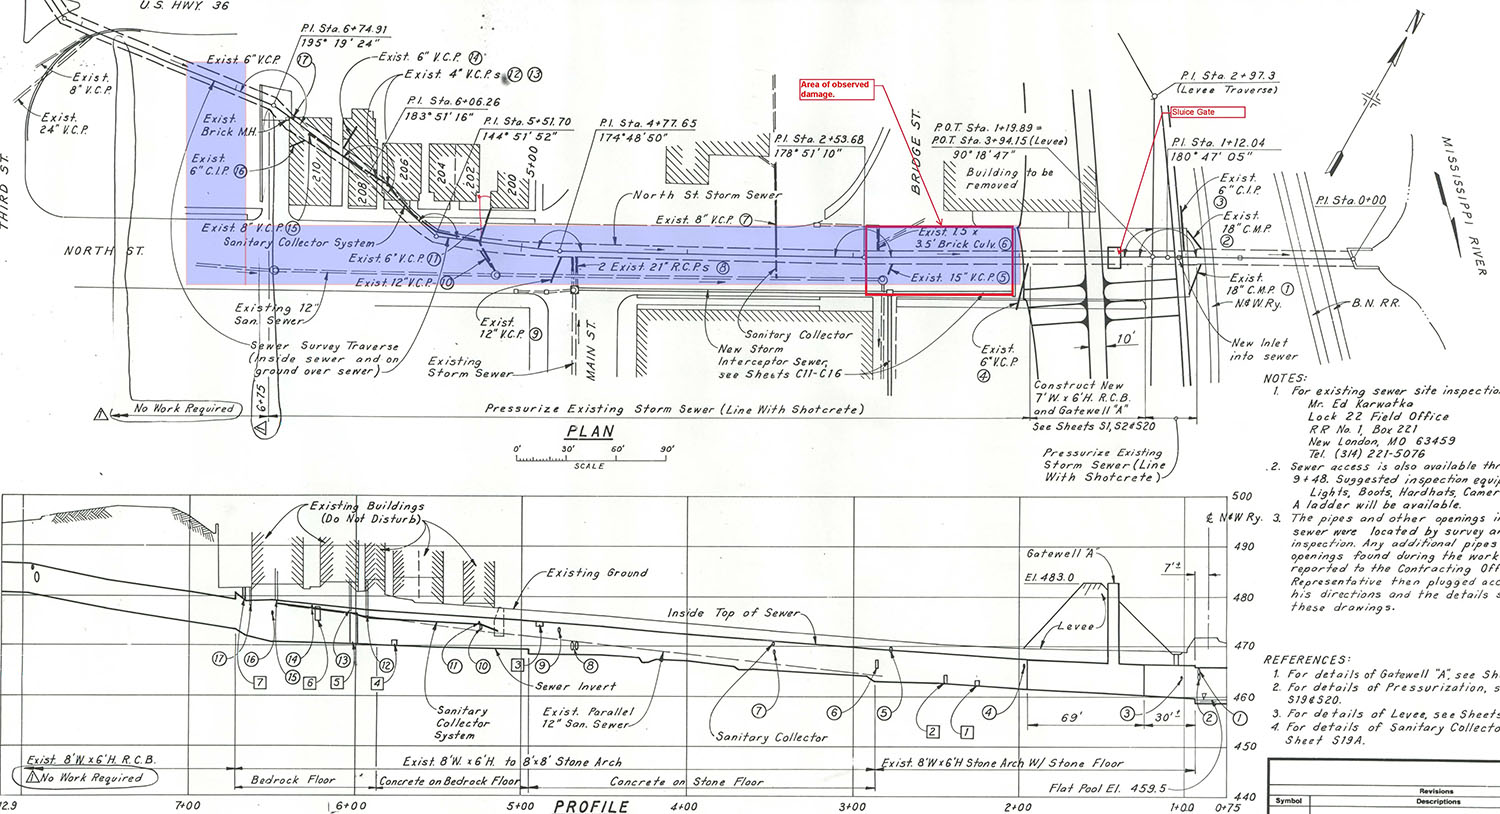 U.S. HWY. 36
P.I. Sta. 6+74.91
195° 19' 24"
Exist. 6" V.C.P.
17
Exist. 6" V.C.P. 14
Exist. 4" V.C.P.s 12 13
Exist.
8" V.C.P.
Exist.
24" V.C.P.
THIRD ST.
Exist.
Brick M.H.
Exist.
6" C.I.P. 16
P.I. Sta. 6+06.26
183° 51' 16"
P.I. Sta. 5+51.70
144° 51' 52"
P.I. Sta. 4+77.65
174° 48' 50"
210
208
206
204
202
200
5+00
Area of observed
damage.
P.I. Sta. 2+53.68
178° 51' 10"
BRIDGE ST.
P.O.T. Sta. 1+19.89 =
P.O.T. Sta. 3+94.15 (Levee)
90° 18' 47"
Building to be
removed
P.I. Sta. 2+97.3
(Levee Traverse)
Sluice Gate
P.I. Sta. 1+12.04
180° 47' 05"
N
MISSISSIPPI RIVER
Exist.
6" C.I.P.
3
Exist.
18" C.M.P.
2
P.I. Sta. 0+00
North St. Storm Sewer
Exist. 8" V.C.P. 7
NORTH ST.
Exist. 8" V.C.P. 15
Sanitary Collector System
Exist. 6" V.C.P. 11
Exist. 12" V.C.P. 10
2 Exist. 21" R.C.P.s 8
Exist. 1.5 x
3.5' Brick Culv. 6
Exist. 15" V.C.P. 5
Exist.
18" C.M.P. 1
N.&W.Ry.
B.N. RR.
Existing 12"
San. Sewer
Sewer Survey Traverse
(inside sewer and on
ground over sewer)
Existing
Storm Sewer
Exist.
12" V.C.P. 9
MAIN ST.
Sanitary Collector
New Storm
Interceptor Sewer,
see Sheets C11-C16
Exist.
6" V.C.P.
4
10'
New Inlet
into sewer
1 No Work Required
6+75
1
Pressurize Existing Storm Sewer (Line With Shotcrete)
Construct New
7' W. x 6' H. R.C.B.
and Gatewell "A"
See Sheets S1, S2 & S20
Pressurize Existing
Storm Sewer (Line
With Shotcrete)
PLAN
0' 30' 60' 90'
SCALE
NOTES:
1. For existing sewer site inspectio
Mr. Ed Karwatka
Lock 22 Field Office
RR No. 1, Box 221
New London, MO 63459
Tel. (314) 221-5076
2. Sewer access is also available th
9+48. Suggested inspection equi
Lights, Boots, Hardhats, Camer
A ladder will be available.
3. The pipes and other openings i
sewer were located by survey a
inspection. Any additional pipes
openings found during the work
reported to the Contracting Off
Representative then plugged acc
his directions and the details s
these drawings.
REFERENCES:
1. For details of Gatewell "A", see Sh
2. For details of Pressurization, s
S19 & S20.
3. For details of Levee, see Sheets
4. For details of Sanitary Collecto
Sheet S19A.
Existing Buildings
(Do Not Disturb)
Existing Ground
Inside Top of Sewer
Gatewell "A"
El. 483.0
Levee
7'±
℄ N&W Ry.
500
490
480
470
460
450
440
17 16 14 15 13 12 11 10 9 8 7 6 5 4 3 2 1
7 6 5 4 3 2 1
Sewer Invert
Sanitary
Collector
System
Exist. Parallel
12" San. Sewer
Sanitary Collector
69'
30'±
Exist. 8'W. x 6'H. R.C.B.
1 No Work Required
Exist. 8'W. x 6'H. to 8'x8' Stone Arch
Exist. 8'W x 6'H Stone Arch W/ Stone Floor
Bedrock Floor
Concrete on Bedrock Floor
Concrete on Stone Floor
Flat Pool El. 459.5
12.9 7+00 6+00 5+00 4+00 3+00 2+00 1+0.0 0+75
PROFILE
Revisions
Symbol
Descriptions